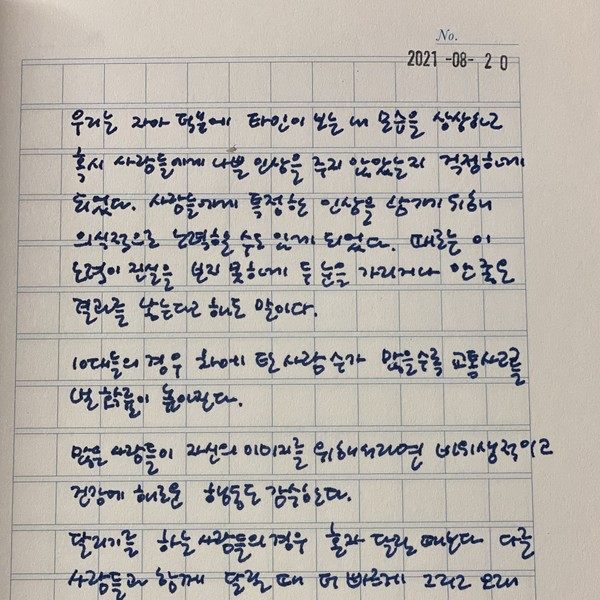 No.
2021 -08- 20
우리는 자아 덕분에 타인이 보는 내 모습을 상상하고
혹시 사람들에게 나쁜 인상을 주지 않았는지 걱정하게
되었다. 사람들에게 특정한 인상을 남기기 위해
의식적으로 노력할 수도 있게 되었다. 때로는 이
노력이 진실을 보지 못하게 두 눈을 가리거나 안 좋은
결과를 낳는다고 해도 말이다.
10대들의 경우 차에 탄 사람 수가 많을수록 교통사고를
낼 확률이 높아진다.
많은 사람들이 자신의 이미지를 위해서라면 비위생적이고
건강에 해로운 행동도 감수한다.
달리기를 하는 사람들의 경우 혼자 달릴 때보다 다른
사람들과 함께 달릴 때 더 빠르게 그리고 오래